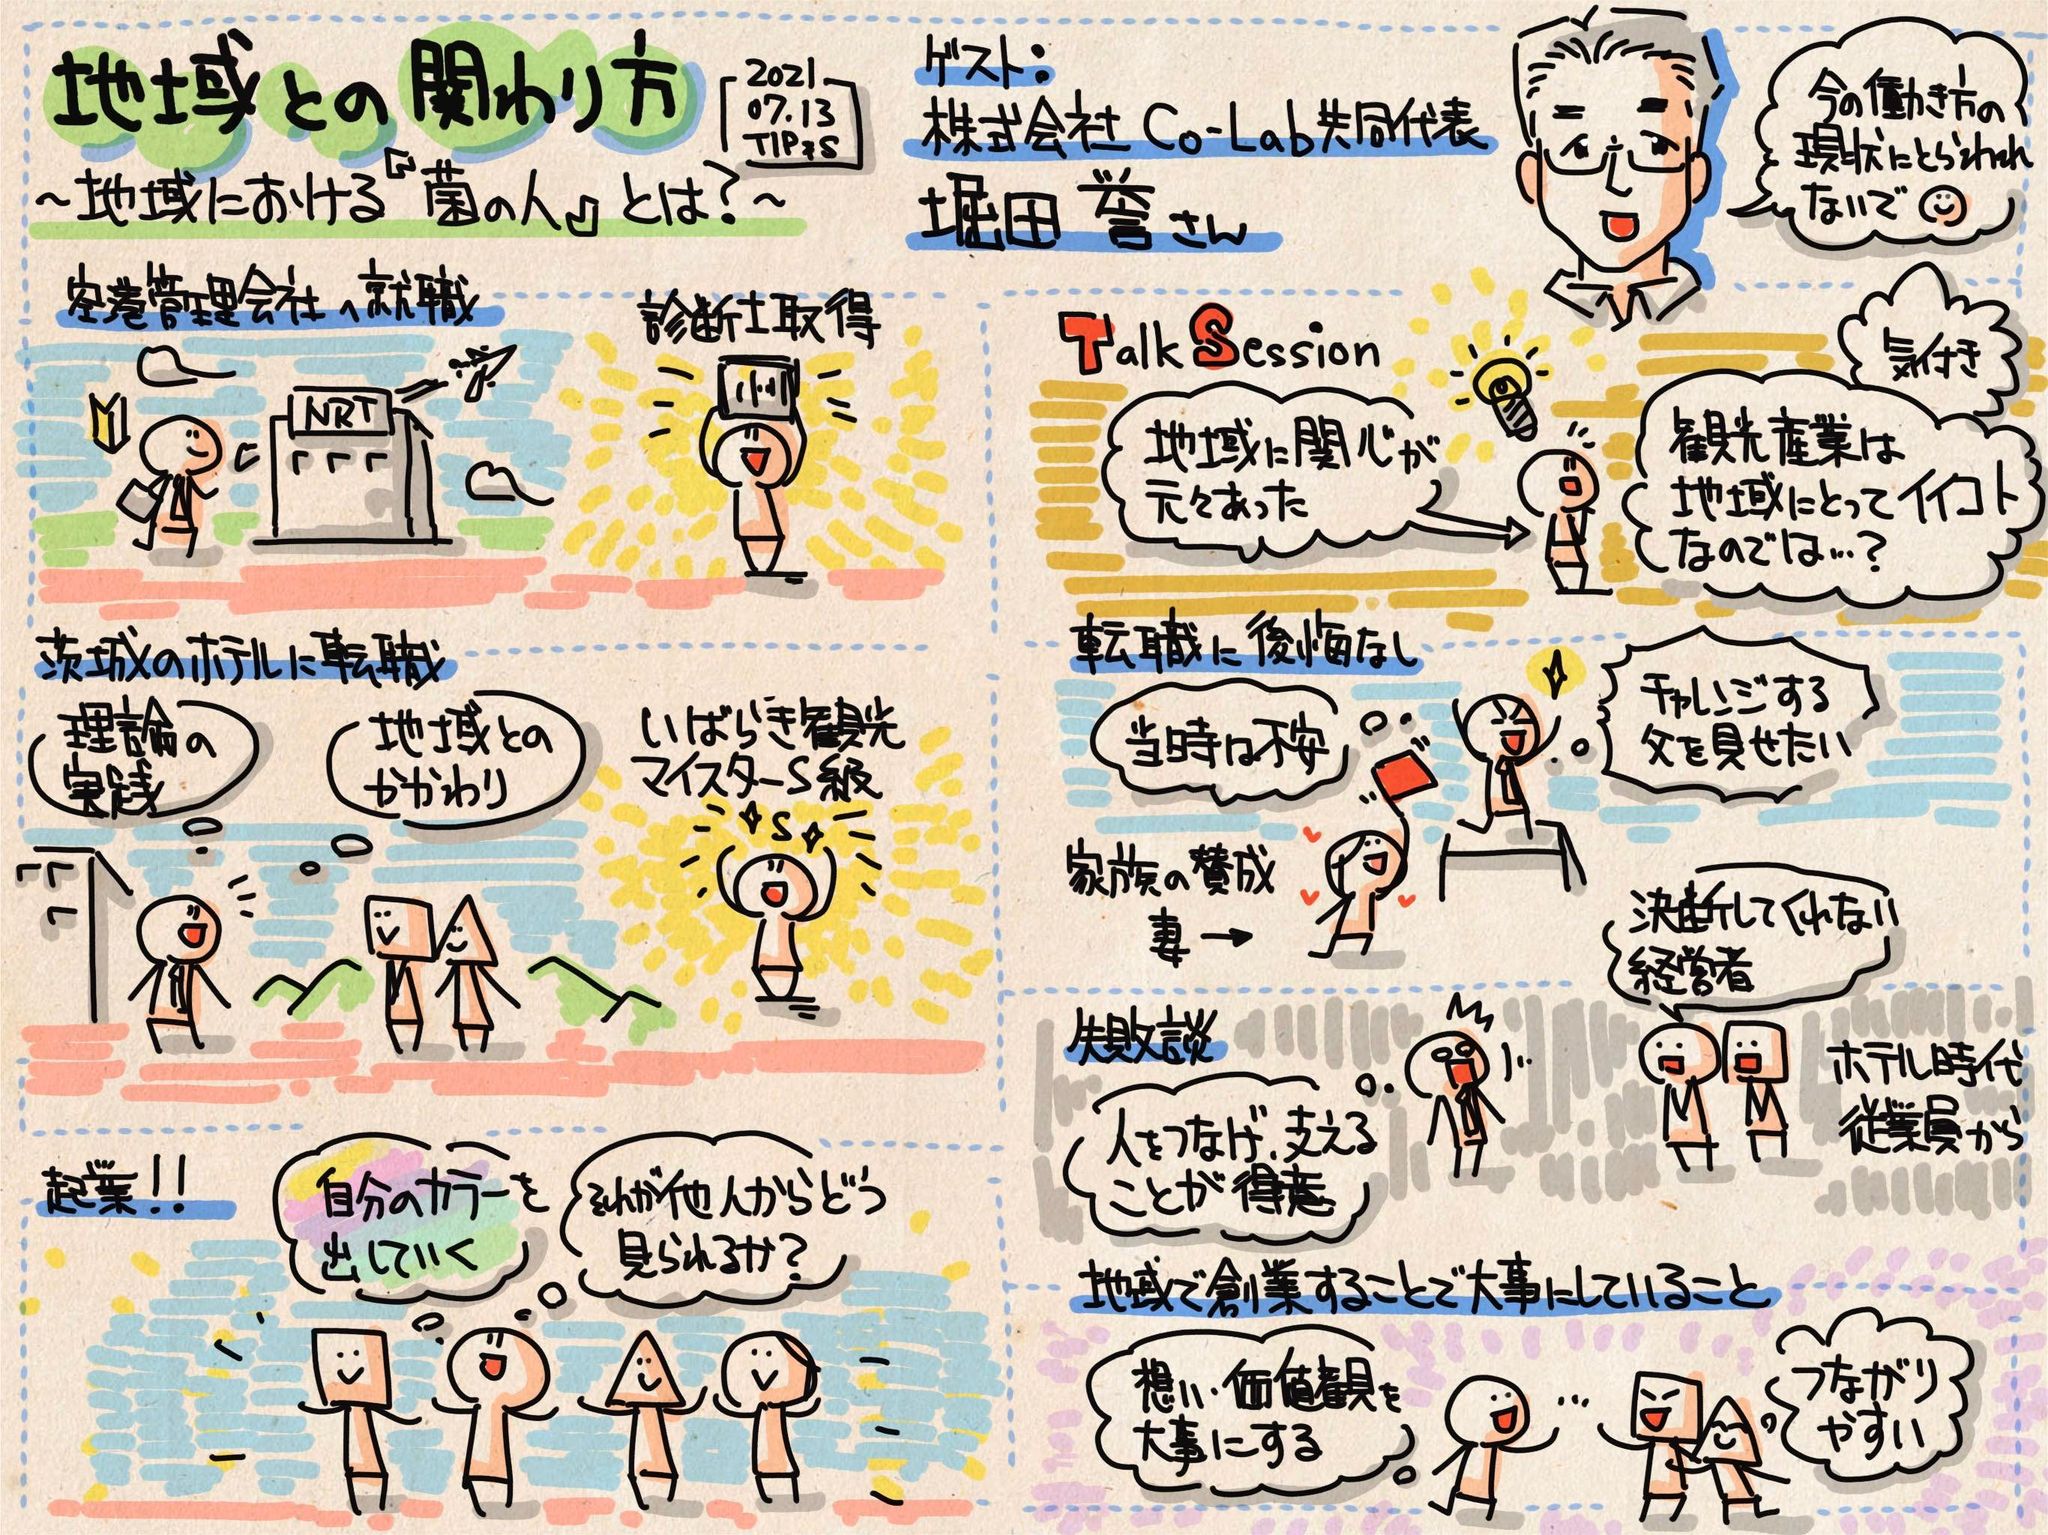 地域との関わり方
2021
07.13
TIP*S
~地域における『菌の人』とは?~
ゲスト:
株式会社 Co-Lab共同代表
堀田 誉さん
今の働き方の
現状にとらわれ
ないで
空港管理会社へ就職
NRT
診断士取得
茨城のホテルに転職
理論の
実践
地域との
かかわり
いばらき観光
マイスターS級
S
起業!!
自分のカラーを
出していく
それが他人からどう
見られるか?
Talk Session
地域に関心が
元々あった
気付き
観光産業は
地域にとってイイコト
なのでは…?
転職に後悔なし
当時は不安
チャレンジする
父を見せたい
家族の賛成
妻→
失敗談
決断してくれない
経営者
ホテル時代
従業員から
人をつなげ、支える
ことが得意
地域で創業することで大事にしていること
想い・価値観を
大事にする
つながり
やすい